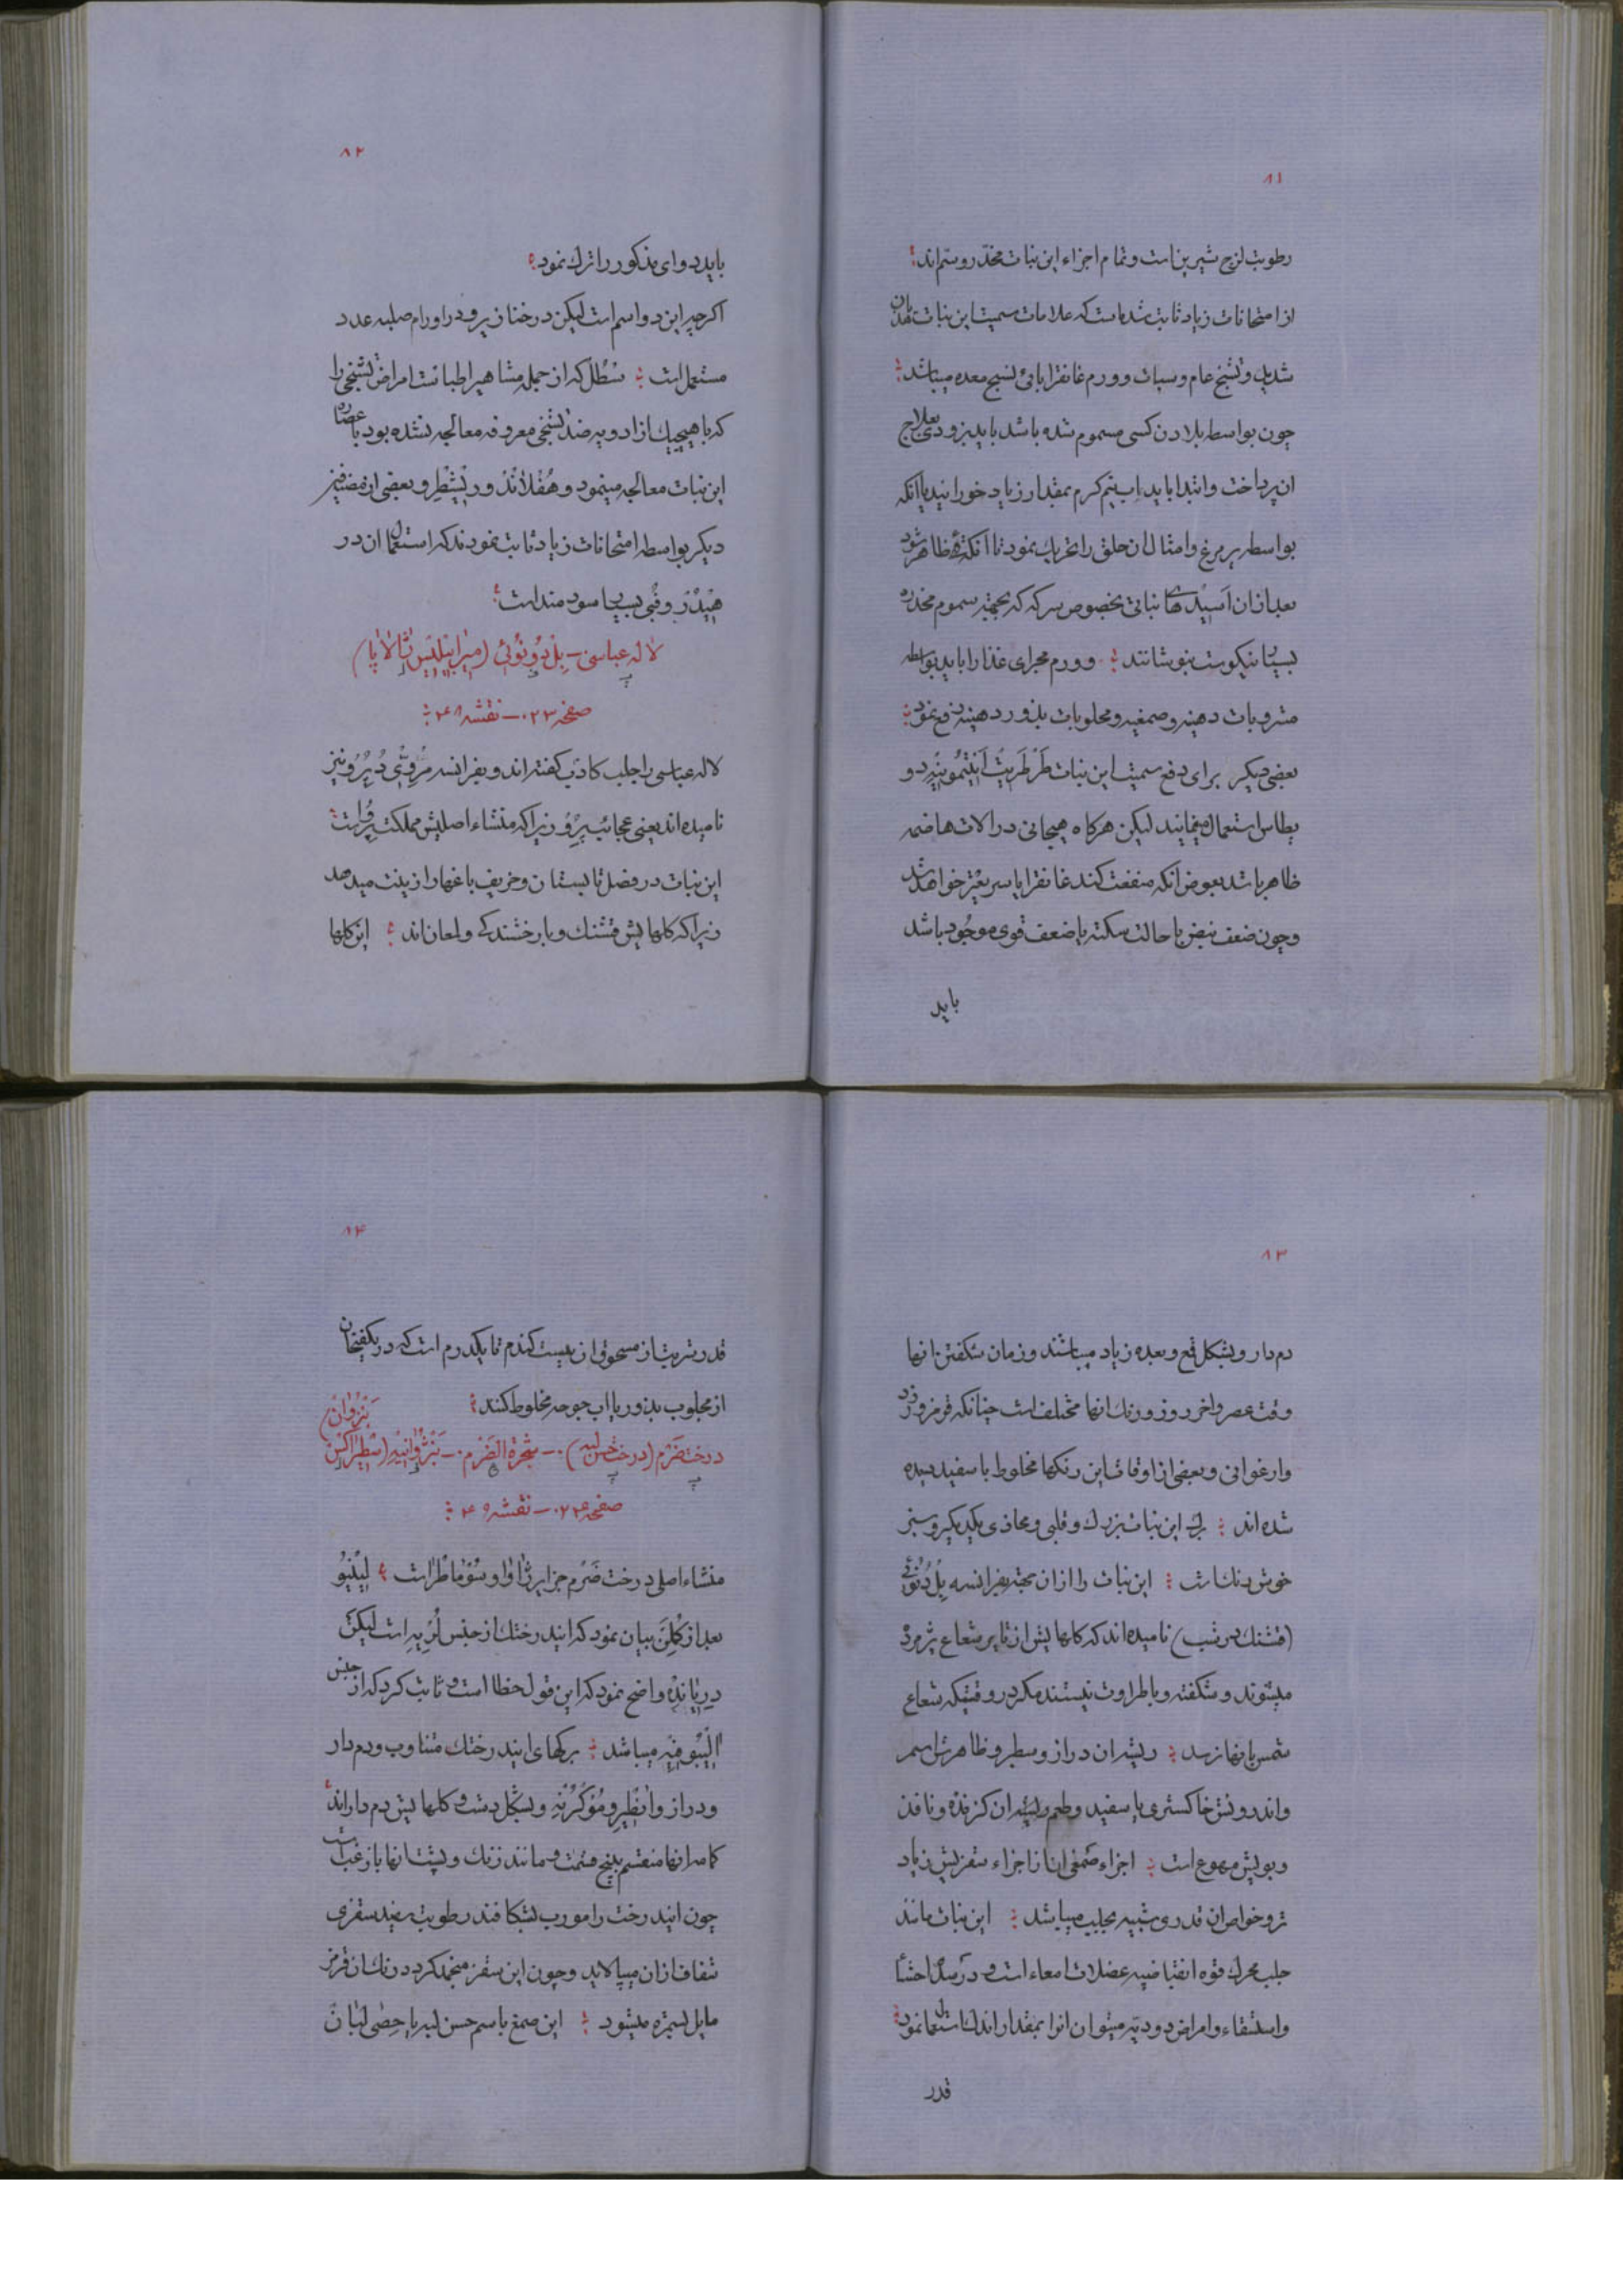 ۸۱
رطوبت لزج شیرین است و تمام اجزاء این نبات مخدّر و سمّ اند
از امتحانات زیاد ثابت شده است که علامات سمیت این نبات هذیان
شدید و تشنج عام و سبات و ورم غانقرایائی نسیج معده میباشد
چون بواسطه بلادن کسی مسموم شده باشد باید بزودی بعلاج
ان پرداخت و ابتدا باید اب نیم کرم بمقدار زیاد خورانید یا انکه
بواسطه پر مرغ و امثال ان حلق را تحریک نمود تا انکه قی ظاهر شود
بعد از ان اَسیدهای نباتی بخصوص سرکه که بجهة سموم مخدره
بسیار نیکوست بنوشانند و ورم مجرای غذا را باید بواسطه
مشروبات دهنیه و صمغیه و محلوبات بذور دهنیه رفع نمود
بعضی دیکر برای دفع سمیت این نبات طَرْطَریت اَنتِمُونیه دو
پطاس استعمال مینمایند لیکن هرکاه هیجانی در الات هاضمه
ظاهر باشد بعوض انکه منفعت کند غانقرایا سریعتر خواهد شد
و چون ضعف نبض با حالت سکته یا ضعف قوی موجود باشد
باید
۸۲
باید دوای مذکور را ترک نمود
اکرچه این دوا سم است لیکن در خنازیر و در اورام صلبه غدد
مستعمل است سْطُلّ که از جمله مشاهیر اطبا است امراض تشنجی را
که با هیچیک از ادویه ضد تشنجی معروفه معالجه نشده بود با عصاره
این نبات معالجه مینمود و هُفْلانْدْ و ریشْطِر و بعضی از مصنفین
دیکر بواسطه امتحانات زیاد ثابت نمودند که استعمال ان در
هیدْرُوفُبی بسیار سودمند است
لاله عباسی ـ بِلْ دُو نُوئی (میرابیلیس ژالاپا)
صفحه ۰۲۳ ـ نقشه ۴۸
لاله عباسی را جلب کاذب کفته اند و بفرانسه مِرْوِیْ دُ پِرُو نیز
نامیده اند یعنی عجائب پِرُو زیرا که منشاء اصلیش مملکت پِرُو است
این نبات در فصل تابستان و خریف باغها را زینت میدهد
زیرا که کلهایش قشنک و با رخشندکی و لمعان اند این کلها
۸۳
دم دار و بشکل قمع و بعده زیاد میباشند و زمان شکفتن انها
وقت عصر و اخر روز و رنک انها مختلف است چنانکه قرمز و زرد
و ارغوانی و بعضی از اوقات این رنکها مخلوط با سفید دیده
شده اند برک این نبات بزرک و قلبی و محاذی یکدیکر و سبز
خوش رنک است این نبات را از ان جهة بفرانسه بِلْ دُ نُوئی
(قشنک در شب) نامیده اند که کلهایش از تاثیر شعاع پژمرده
میشوند و شکفته و با طراوت نیستند مکر در وقتیکه شعاع
شمس بانها نرسد ریشه ان دراز و سطبر و ظاهرش اسمر
و اندرونش خاکستری یا سفید و طعم ریشه ان کزنده و نافذ
و بویش مهوع است اجزاء صمغی ان از اجزاء سقزیش زیاد
تر و خواص ان قدری شبیه بجلب میباشد این نبات مانند
جلب محرک قوه انقباضیه عضلات امعاء است و در سدد احشا
و استسقاء و امراض دودیه میتوان انرا بمقدار اندک استعمال نمود
قدر
۸۴
قدر شربت از مسحوق ان بیست کندم تا یکدرم است که در یکفنجان
از محلوب بذور یا اب جوجه مخلوط کنند
درخت ضَرْم (درخت حسن لبه) ـ شجرة الضَرْم ـ بَنْژُوانیِه (سْطیراکس بَنْزُوان)
صفحه ۰۲۴ ـ نقشه ۴۹
منشاء اصلی درخت ضَرْم جزایر ژاوا و سُوماطرا است لینِیُو
بعد از کلن بیان نمود که ایندرختک از جنس لُرِیه است لیکن
دِرِیاندِر واضح نمود که این قول خطا است و ثابت کرد که از جنس
میباشد برکهای ایندرختک متناوب و دم دار
و دراز و و مُوکرُنِه و بشکل دشت و کلهایش دم دار اند
کاسه انها منقسم به پنج قسمت و مانند زنک و پشت انها با زغب است
چون ایندرخت را مورب بشکافند رطوبت سفید سقزی
شفاف از ان میپالاید و چون این سقز منجمد کردد رنک ان قرمز
مایل بسمره میشود این صمغ باسم حسن لبه یا حِصٰی لبٰان